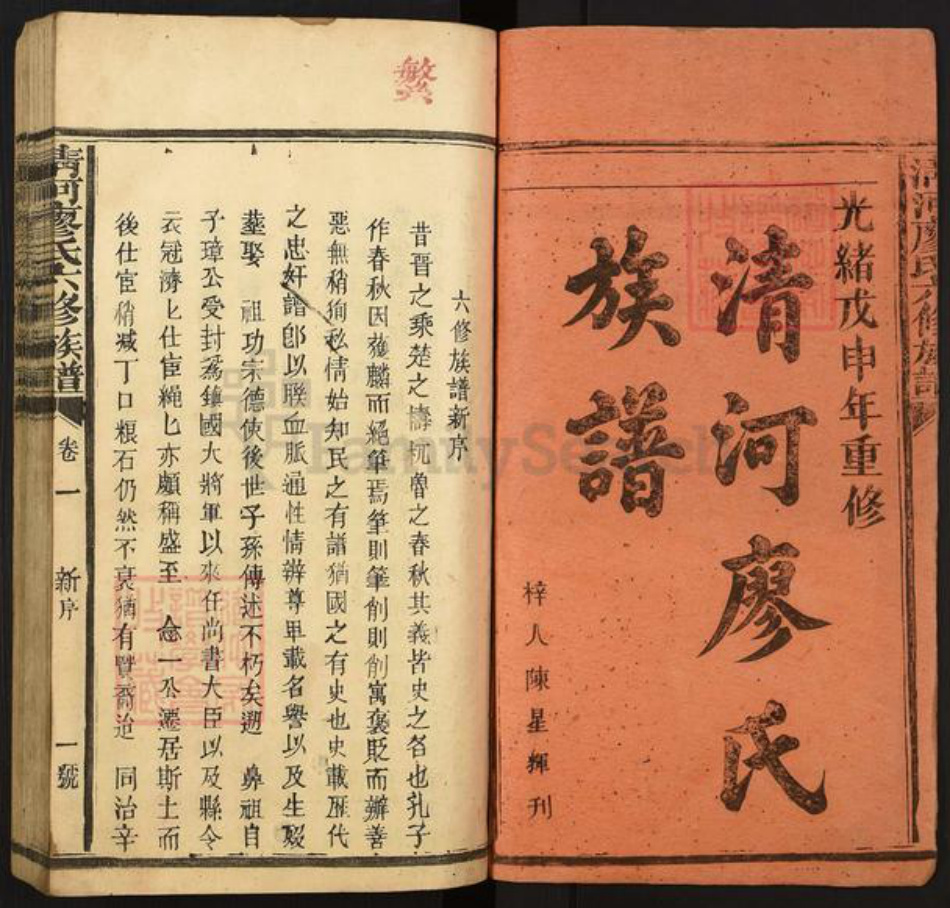 光緒戊申年重修
清河廖氏
族譜
梓人陳星輝刊
清河廖氏六修族譜
繁
六修族譜新序
昔晋之乘楚之檮杌魯之春秋其義皆史之名也孔子
作春秋因獲麟而絕筆焉筆則筆削則削寓褒貶而辦善
惡無稍徇私情始知民之有譜猶國之有史也史載歷代
之忠奸譜卽以聯血脈通性情辦尊卑載名譽以及生殁
塟娶 祖功宗德使後世子孫傳述不朽矣遡 鼻祖自
子璋公受封爲鎮國大將軍以來任尚書大臣以及縣令
衣冠濟匕仕宦繩匕亦頗稱盛至 念一公遷居斯土而
後仕宦稍減丁口粮石仍然不衰猶有 同治辛
清河廖氏六修族譜 卷一 新序 一號
FamilySearch